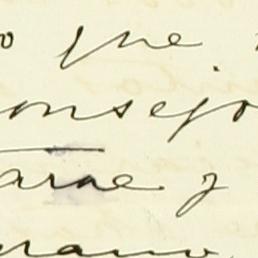 o que
onsejo
arae y
rano